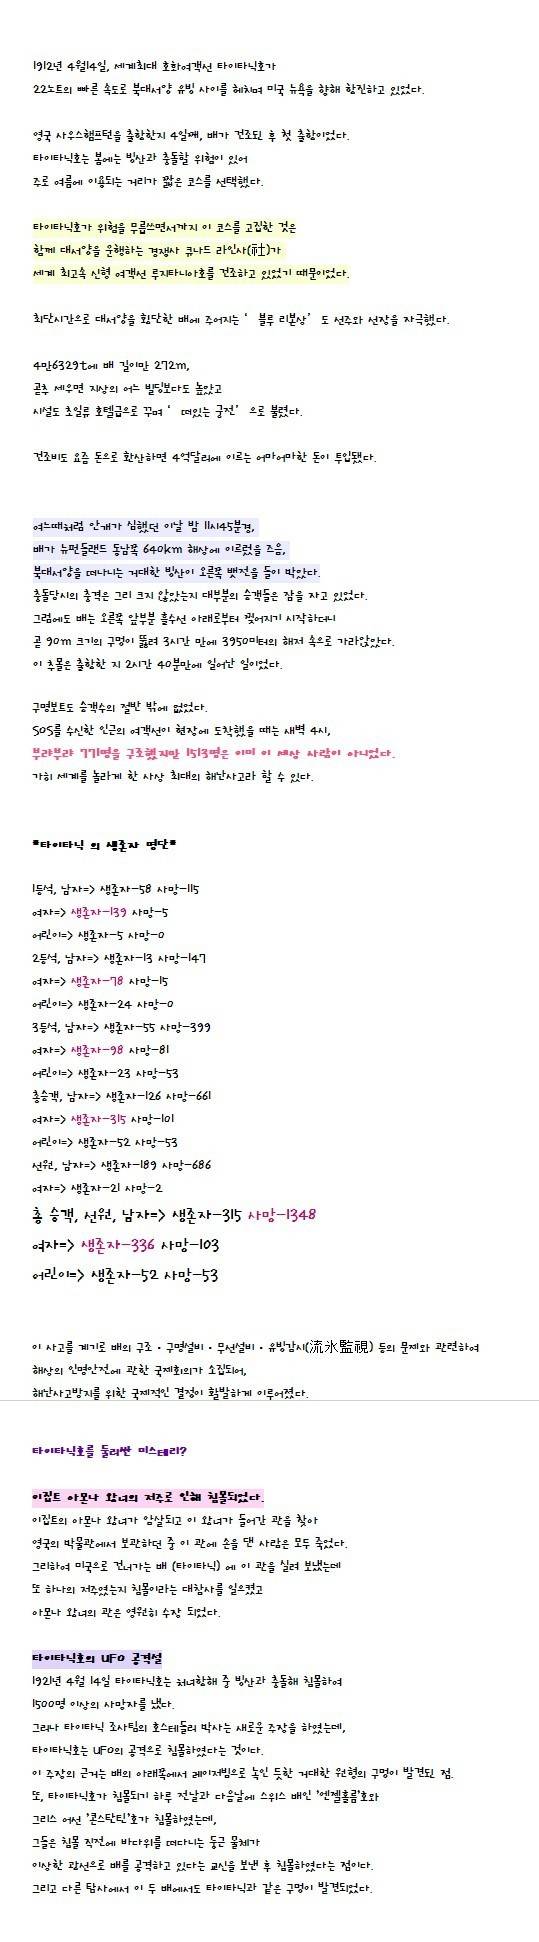 1912년 4월14일, 세계최대 호화여객선 타이타닉호가
22노트의 빠른 속도로 북대서양 유빙 사이를 헤치며 미국 뉴욕을 향해 항진하고 있었다.
영국 사우스햄프턴을 출항한지 4일째, 배가 건조된 후 첫 출항이었다.
타이타닉호는 봄에는 빙산과 충돌할 위험이 있어
주로 여름에 이용되는 거리가 짧은 코스를 선택했다.
타이타닉호가 위험을 무릅쓰면서까지 이 코스를 고집한 것은
함께 대서양을 운행하는 경쟁사 큐나드 라인사(社)가
세계 최고속 신형 여객선 루지타니아호를 건조하고 있었기 때문이었다.
최단시간으로 대서양을 횡단한 배에 주어지는 ' 블루 리본상' 도 선주와 선장을 자극했다.
4만6329t에 배 길이만 272m,
곧추 세우면 지상의 어느 빌딩보다도 높았고
시설도 초일류 호텔급으로 꾸며 ' 떠있는 궁전' 으로 불렸다.
건조비도 요즘 돈으로 환산하면 4억달러에 이르는 어마어마한 돈이 투입됐다.
여느때처럼 안개가 심했던 이날 밤 11시45분경,
배가 뉴펀들랜드 동남쪽 640km 해상에 이르렀을 즈음,
북대서양을 떠다니는 거대한 빙산이 오른쪽 뱃전을 들이 박았다.
충돌당시의 충격은 그리 크지 않았는지 대부분의 승객들은 잠을 자고 있었다.
그럼에도 배는 오른쪽 앞부분 흘수선 아래로부터 찢어지기 시작하더니
곧 90m 크기의 구멍이 뚫려 3시간 만에 3950미터의 해저 속으로 가라앉았다.
이 추몰은 출항한 지 2시간 40분만에 일어난 일이었다.
구명보트도 승객수의 절반 밖에 없었다.
SOS를 수신한 인근의 여객선이 현장에 도착했을 때는 새벽 4시,
부랴부랴 771명을 구조했지만 1513명은 이미 이 세상 사람이 아니었다.
가히 세계를 놀라게 한 사상 최대의 해난사고라 할 수 있다.
*타이타닉 의 생존자 명단*
1등석, 남자=> 생존자-58 사망-115
여자=> 생존자-139 사망-5
어린이=> 생존자-5 사망-0
2등석, 남자=> 생존자-13 사망-147
여자=> 생존자-78 사망-15
어린이=> 생존자-24 사망-0
3등석, 남자=> 생존자-55 사망-399
여자=> 생존자-98 사망-81
어린이=> 생존자-23 사망-53
총승객, 남자=> 생존자-126 사망-661
여자=> 생존자-315 사망-101
어린이=> 생존자-52 사망-53
선원, 남자=> 생존자-189 사망-686
여자=> 생존자-21 사망-2
총 승객, 선원, 남자=> 생존자-315 사망-1348
여자=> 생존자-336 사망-103
어린이=> 생존자-52 사망-53
이 사고를 계기로 배의 구조·구명설비·무선설비·유빙감시(流氷監視) 등의 문제와 관련하여
해상의 인명안전에 관한 국제회의가 소집되어,
해난사고방지를 위한 국제적인 결정이 활발하게 이루어졌다.
타이타닉호를 둘러싼 미스테리?
이집트 아몬나 왕녀의 저주로 인해 침몰되었다.
이집트의 아몬나 왕녀가 암살되고 이 왕녀가 들어간 관을 찾아
영국의 박물관에서 보관하던 중 이 관에 손을 댄 사람은 모두 죽었다.
그리하여 미국으로 건너가는 배 (타이타닉) 에 이 관을 실려 보냈는데
또 하나의 저주였는지 침몰이라는 대참사를 일으켰고
아몬나 왕녀의 관은 영원히 수장 되었다.
타이타닉호의 UFO 공격설
1921년 4월 14일 타이타닉호는 처녀항해 중 빙산과 충돌해 침몰하여
1500명 이상의 사망자를 냈다.
그러나 타이타닉 조사팀의 호스테들러 박사는 새로운 주장을 하였는데,
타이타닉호는 UFO의 공격으로 침몰하였다는 것이다.
이 주장의 근거는 배의 아래쪽에서 레이저빔으로 녹인 듯한 거대한 원형의 구멍이 발견된 점.
또, 타이타닉호가 침몰되기 하루 전날과 다음날에 스위스 배인 '엔젤홀름'호와
그리스 어선 '콘스탄틴'호가 침몰하였는데,
그들은 침몰 직전에 바다위를 떠다니는 둥근 물체가
이상한 광선으로 배를 공격하고 있다는 교신을 보낸 후 침몰하였다는 점이다.
그리고 다른 탐사에서 이 두 배에서도 타이타닉과 같은 구멍이 발견되었다.